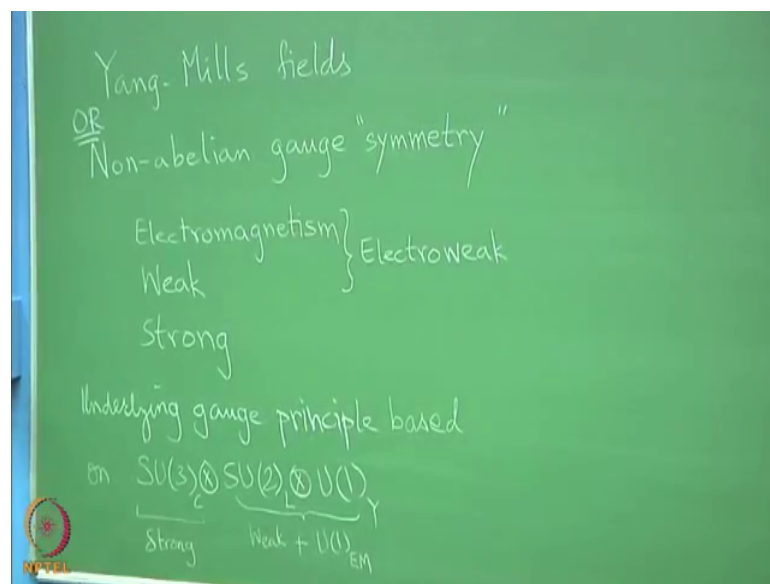 Yang-Mills fields
OR
Non-abelian gauge "symmetry"
Electromagnetism } Electroweak
Weak
Strong
Underlying gauge principle based
on SU(3)_C ⊗ SU(2)_L ⊗ U(1)_Y
Strong Weak + U(1)_EM
NPTEL